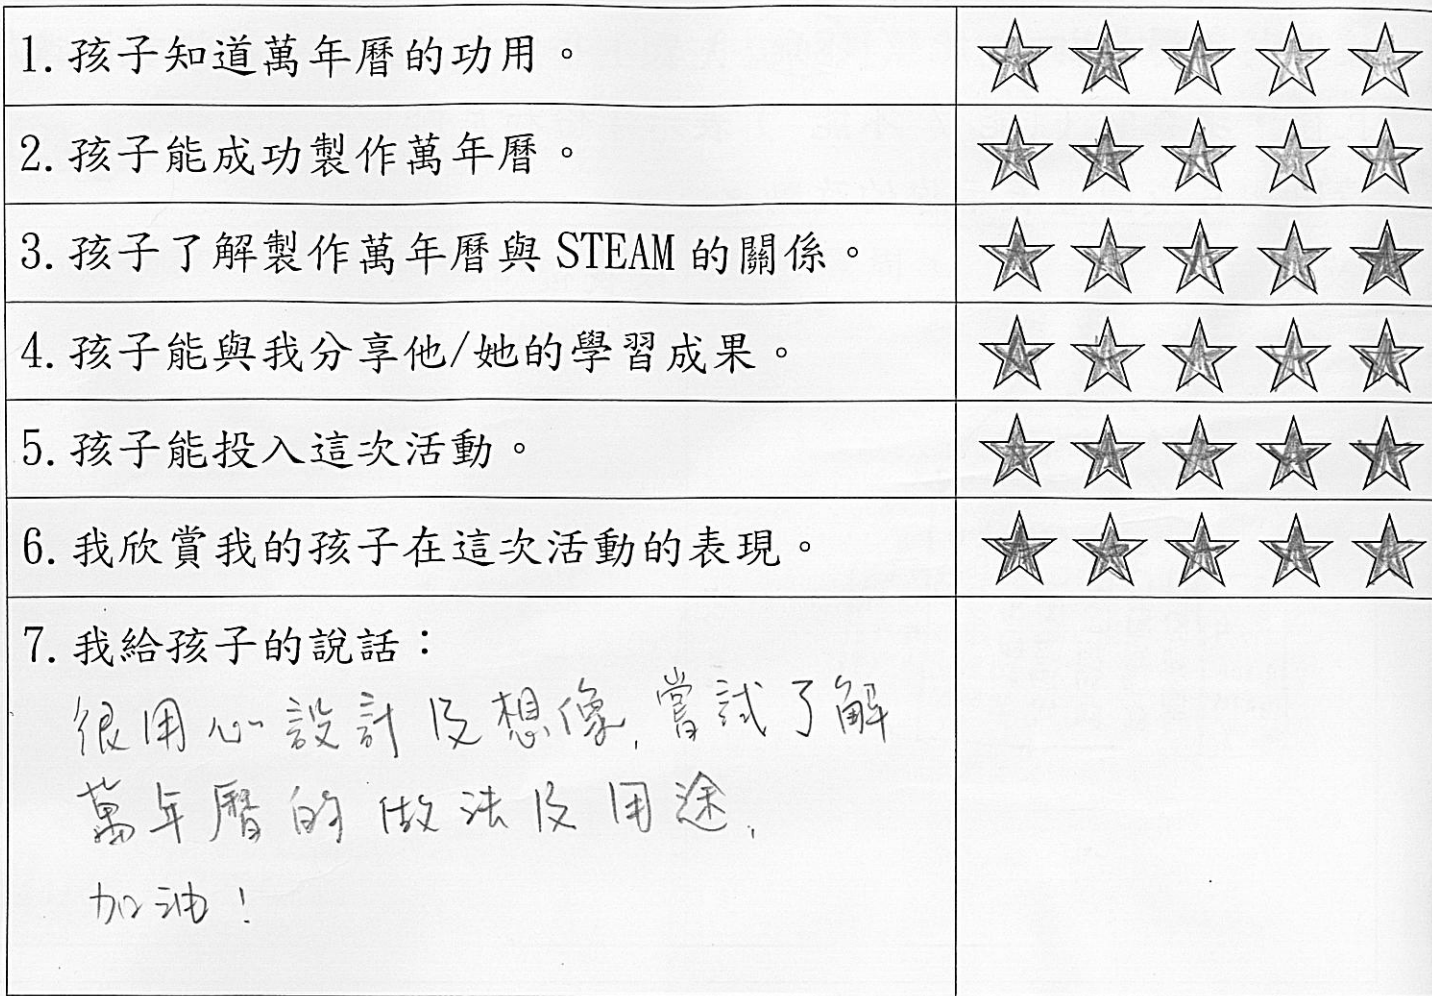 1. 孩子知道萬年曆的功用。
2. 孩子能成功製作萬年曆。
3. 孩子了解製作萬年曆與 STEAM 的關係。
4. 孩子能與我分享他/她的學習成果。
5. 孩子能投入這次活動。
6. 我欣賞我的孩子在這次活動的表現。
7. 我給孩子的說話：
很用心設計及想像，嘗試了解
萬年曆的做法及用途，
加油！